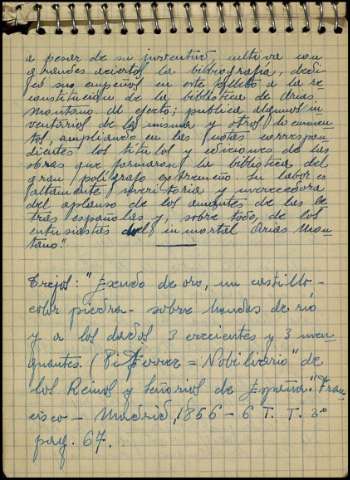 a pesar de su juventud cultiva con
grandes aciertos la bibliografía, dedi
có sus empeños en este folleto a la re
constitución de la biblioteca de Arias
Montano. Al efecto; publica algunos in
ventarios de la misma y otros documen
tos, ampliando en las notas correspon
dientes los títulos y ediciones de las
obras que formaron la biblioteca del
gran polígrafo extremeño. Su labor es
altamente meritoria y merecedora
del aplauso de los amantes de las le
tras españolas y, sobre todo, de los
entusiastas del inmortal Arias Mon
tano."
Trejos: "Escudo de oro, un castillo-
color piedra - sobre hondas de río
y a los dados 3 crecientes y 3 men
guantes. (Piferrer = Nobiliario" de
los Reinos y Señoríos de España." Fran
cisco - Madrid, 1856 - 6 T. T. 3º
pag. 67.